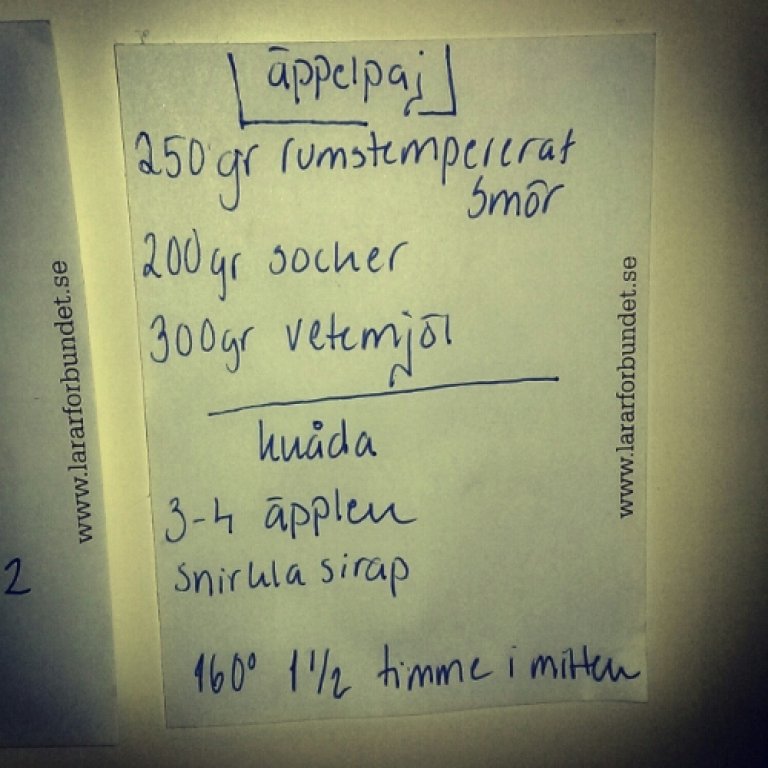 äppelpaj
250 gr rumstempererat
smör
200 gr socker
300gr vetemjöl
knåda
3-4 äpplen
snirkla sirap
160° 1 1/2 timme i mitten
www.lararforbundet.se
www.lararforbundet.se
2